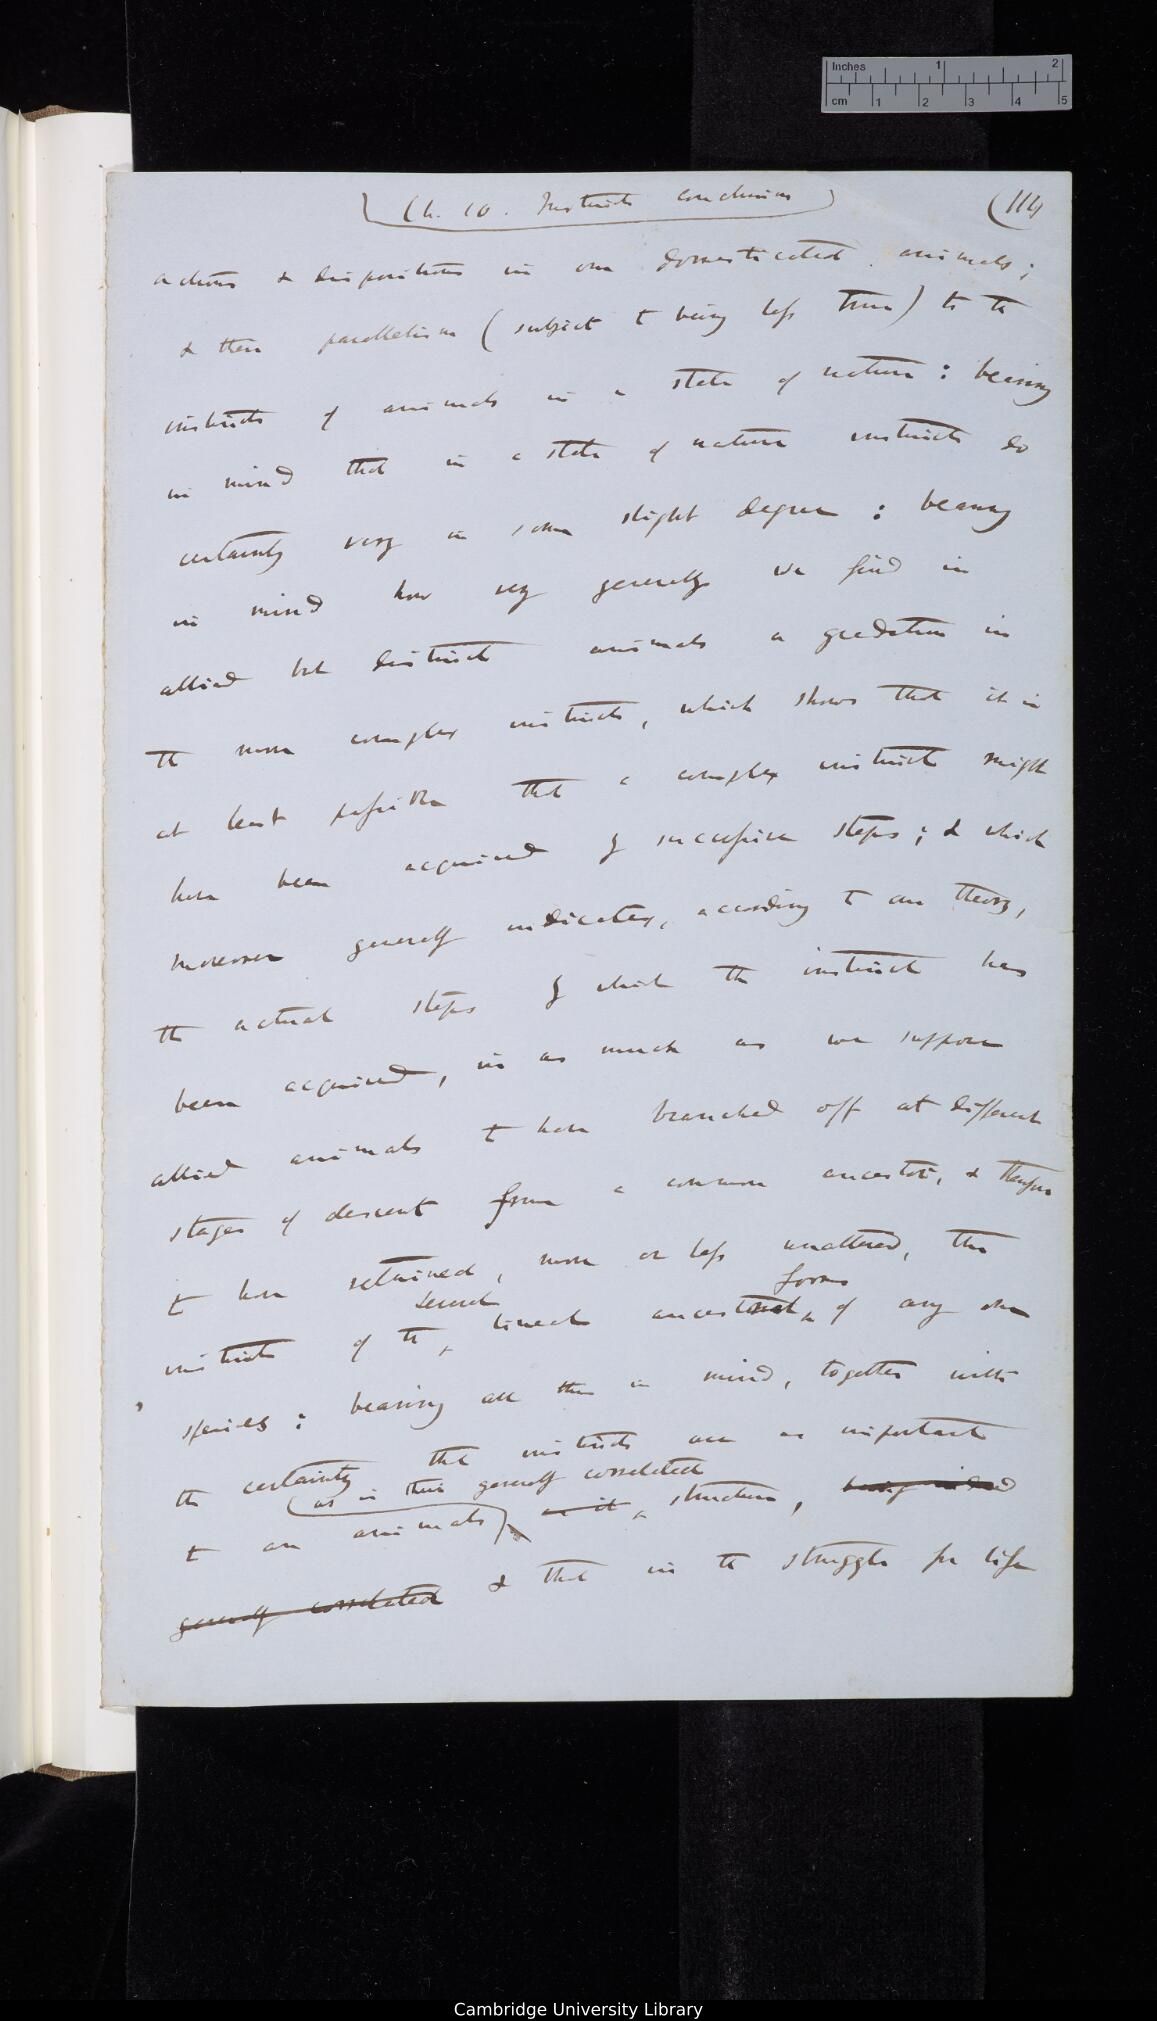 Inches 1 2
cm 1 2 3 4 5
Ch. 10. Instincts conclusion
(114
actions & dispositions in our domesticated animals;
& their parallelism (subject to being less true) to the
instincts of animals in a state of nature: bearing
in mind that in a state of nature instincts do
certainly vary in some slight degree: bearing
in mind how very generally we find in
allied but distinct animals a gradation in
the more complex instincts, which shows that it is
at least possible that a complex instinct might
have been acquired by successive steps; & which
moreover generally indicates, according to our theory,
the actual steps by which the instinct has
been acquired, in as much as we suppose
allied animals to have branched off at different
stages of descent from a common ancestor, & therefore
to have retained, more or less unaltered, the
forms
lineal
instincts of the ancestral of any one
species: bearing all this in mind, together with
the certainty that instincts are as important
(as is their generally correlated
to an animals) as it structure, being indeed
generally correlated & that in the struggle for life
Cambridge University Library